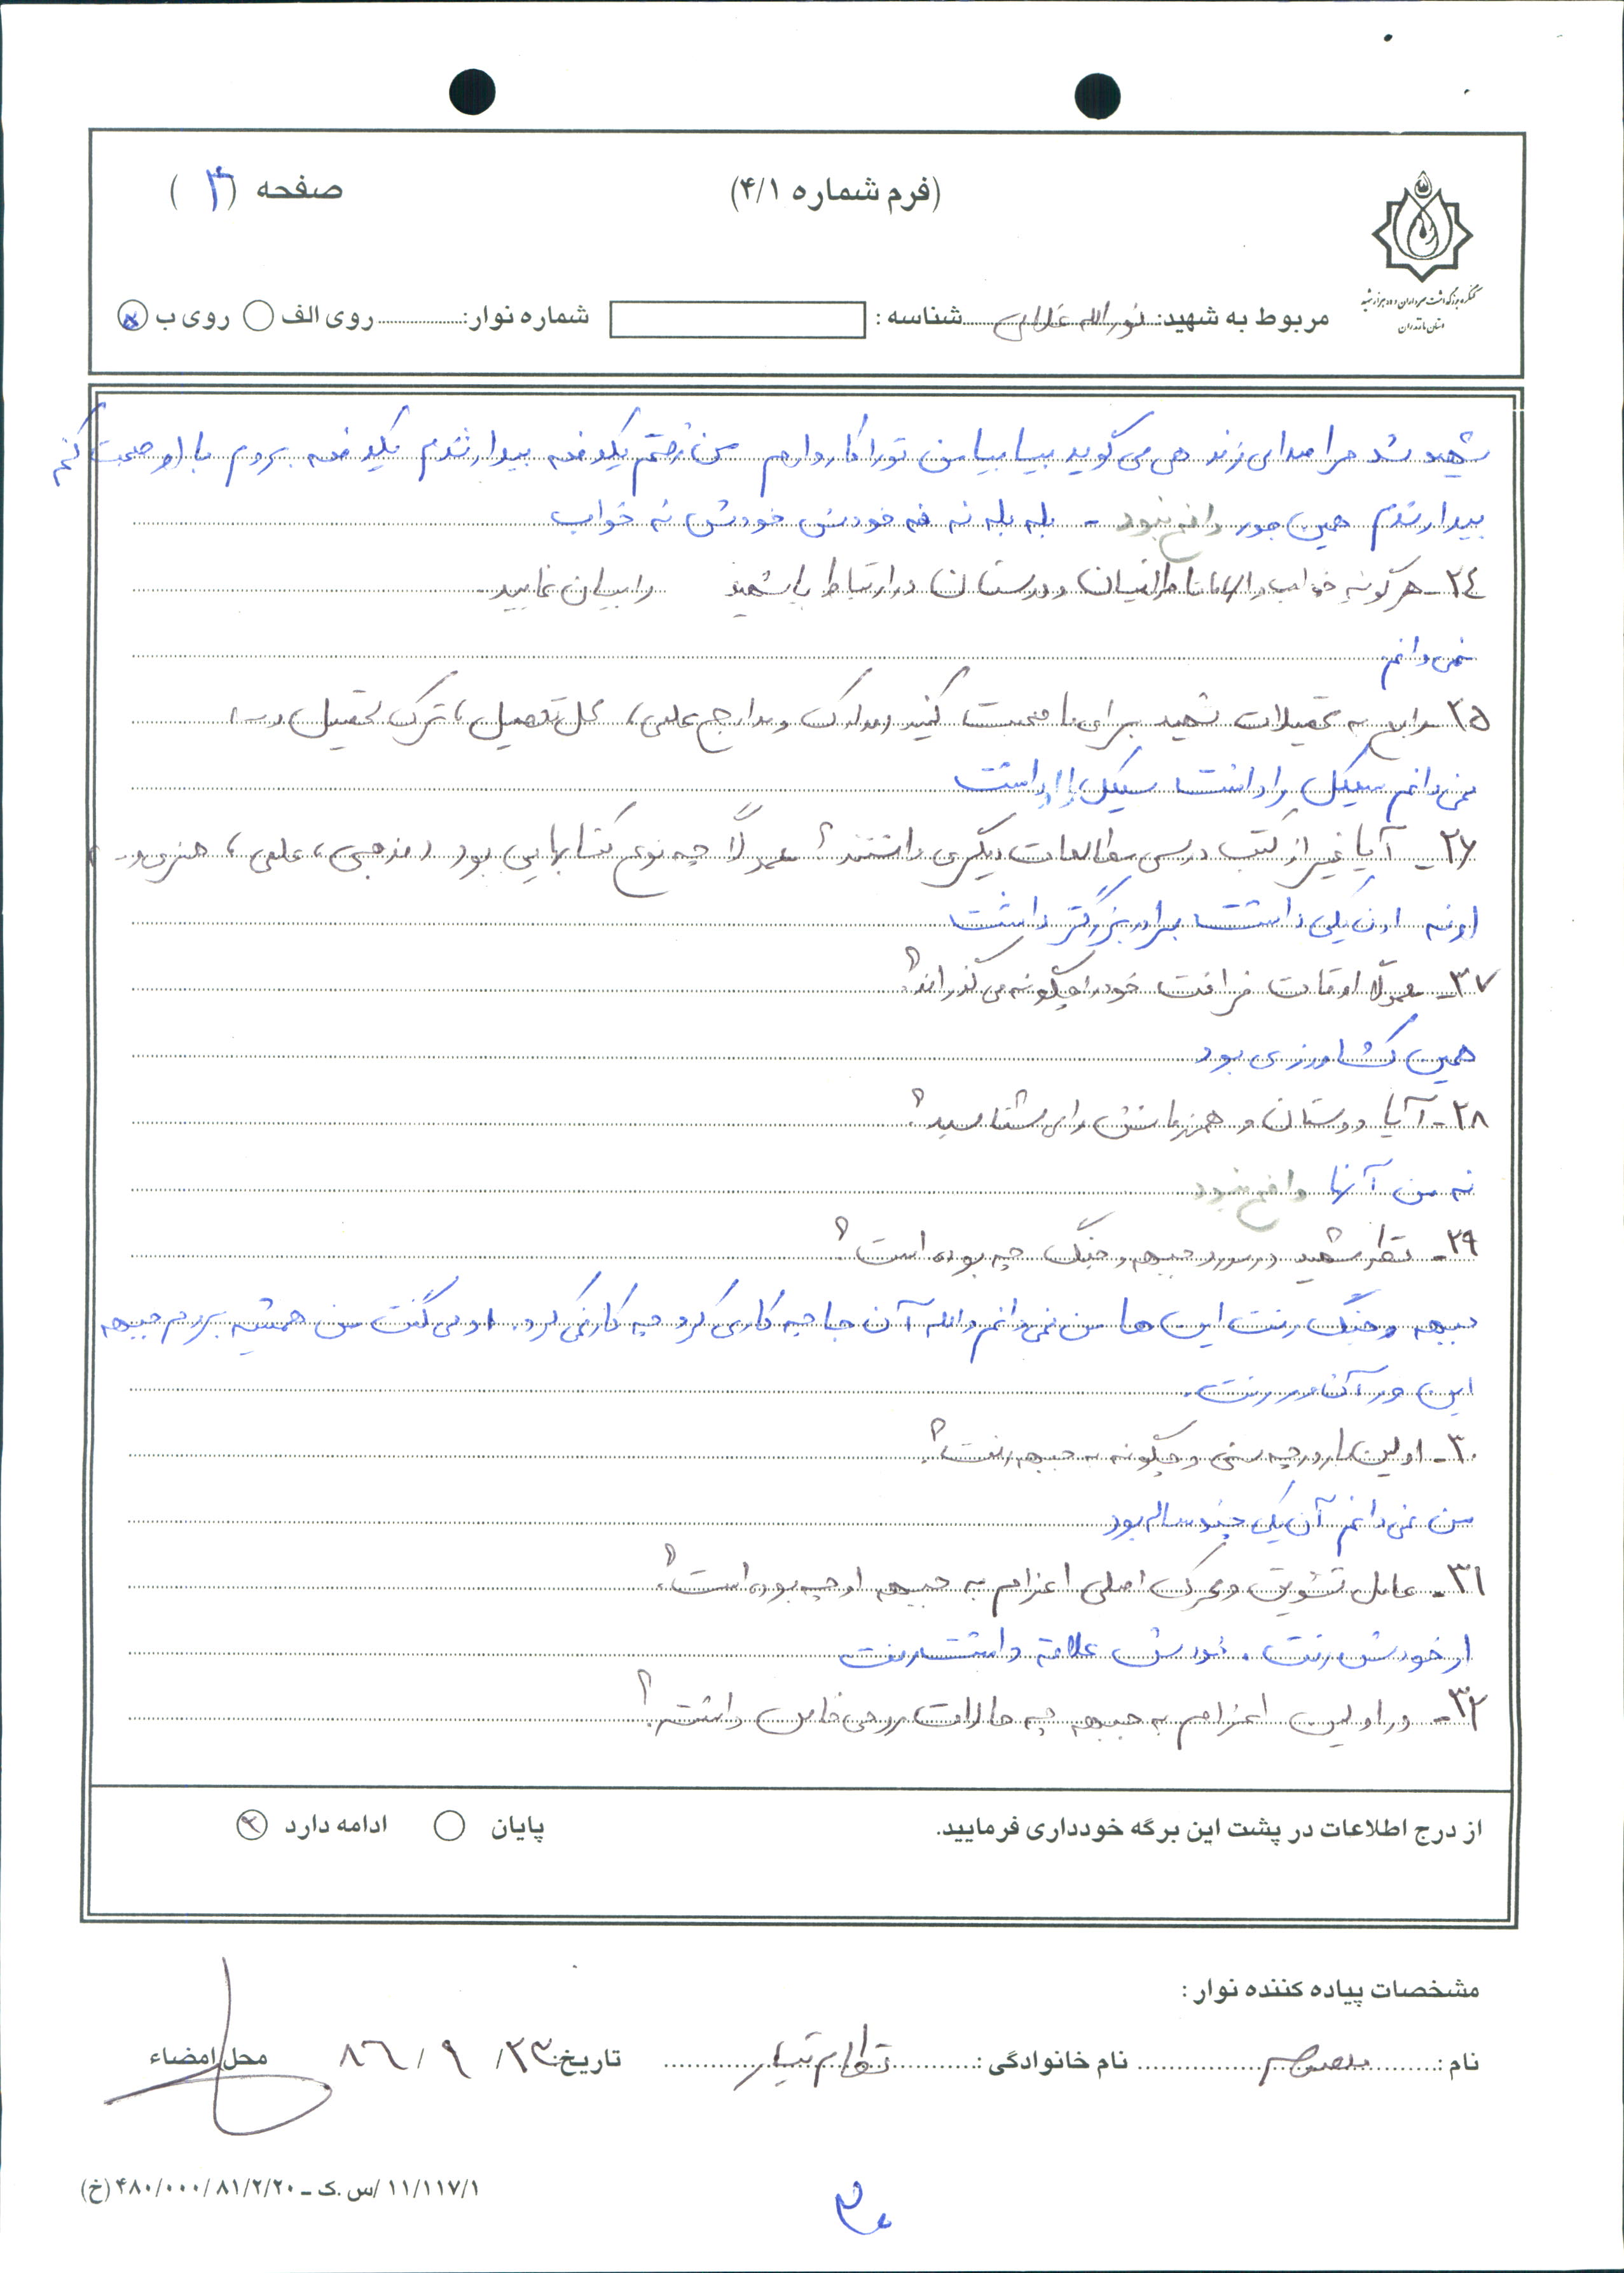 (فرم شماره ۴/۱)
صفحه (۴)
کنگره بزرگداشت سرداران و ده هزار شهید
استان مازندران
مربوط به شهید: نوراله غلامی شناسه : شماره نوار: روی الف روی ب
شهید شد مرا صدا می زند هی می گوید بیا بیا من تو را کار دارم من رفتم یکدفعه بیدار شدم یکدفعه بروم با او صحبت کنم
بیدار شدم همین جور واضح نبود - بله بله نه خودش خودش نه خواب
۲۴- هرگونه خواب و الهامات اطرافیان و دوستان در ارتباط با شهید را بیان نمایید
نمی دانم
۲۵- راجع به تحصیلات شهید برای ما صحبت کنید (مدارک و مدارج علمی، محل تحصیل، ترک تحصیل و...)
نمی دانم سیکل را داشت سیکل را داشت
۲۶- آیا غیر از کتب درسی مطالعات دیگری داشتند؟ معمولاً چه نوع کتابهایی بود (مذهبی، علمی، هنری و...)
او نه اون یکی داشت برادر بزرگتر داشت
۲۷- معمولاً اوقات فراغت خود را چگونه می گذراند؟
همین کشاورزی بود
۲۸- آیا دوستان و همرزمانش را می شناسید؟
نه من آنها واضح نبود
۲۹- نظر شهید در مورد جبهه و جنگ چه بوده است؟
جبهه و جنگ رفت این ها من نمی دانم والله آن جا چه کاری کرد چه کار نمی کرد. او می گفت من همیشه بروم جبهه
این ور آن ور رفت.
۳۰- اولین بار در چه سنی و چگونه به جبهه رفت؟
من نمی دانم آن یکی چند ساله بود
۳۱- عامل تشویق و محرک اصلی اعزام به جبهه او چه بوده است؟
از خودش رفت. خودش علاقه داشت رفت
۳۲- در اولین اعزام به جبهه چه حالات روحی خاص داشت؟
از درج اطلاعات در پشت این برگه خودداری فرمایید.
پایان ادامه دارد
مشخصات پیاده کننده نوار :
نام : معصومه نام خانوادگی : تاریخ: ۸۶/۹/۲۳ محل امضاء
۱۱/۱۱۷/۱ /س.ک – ۴۸۰/۰۰۰/۸۱/۲/۲۰ (خ)